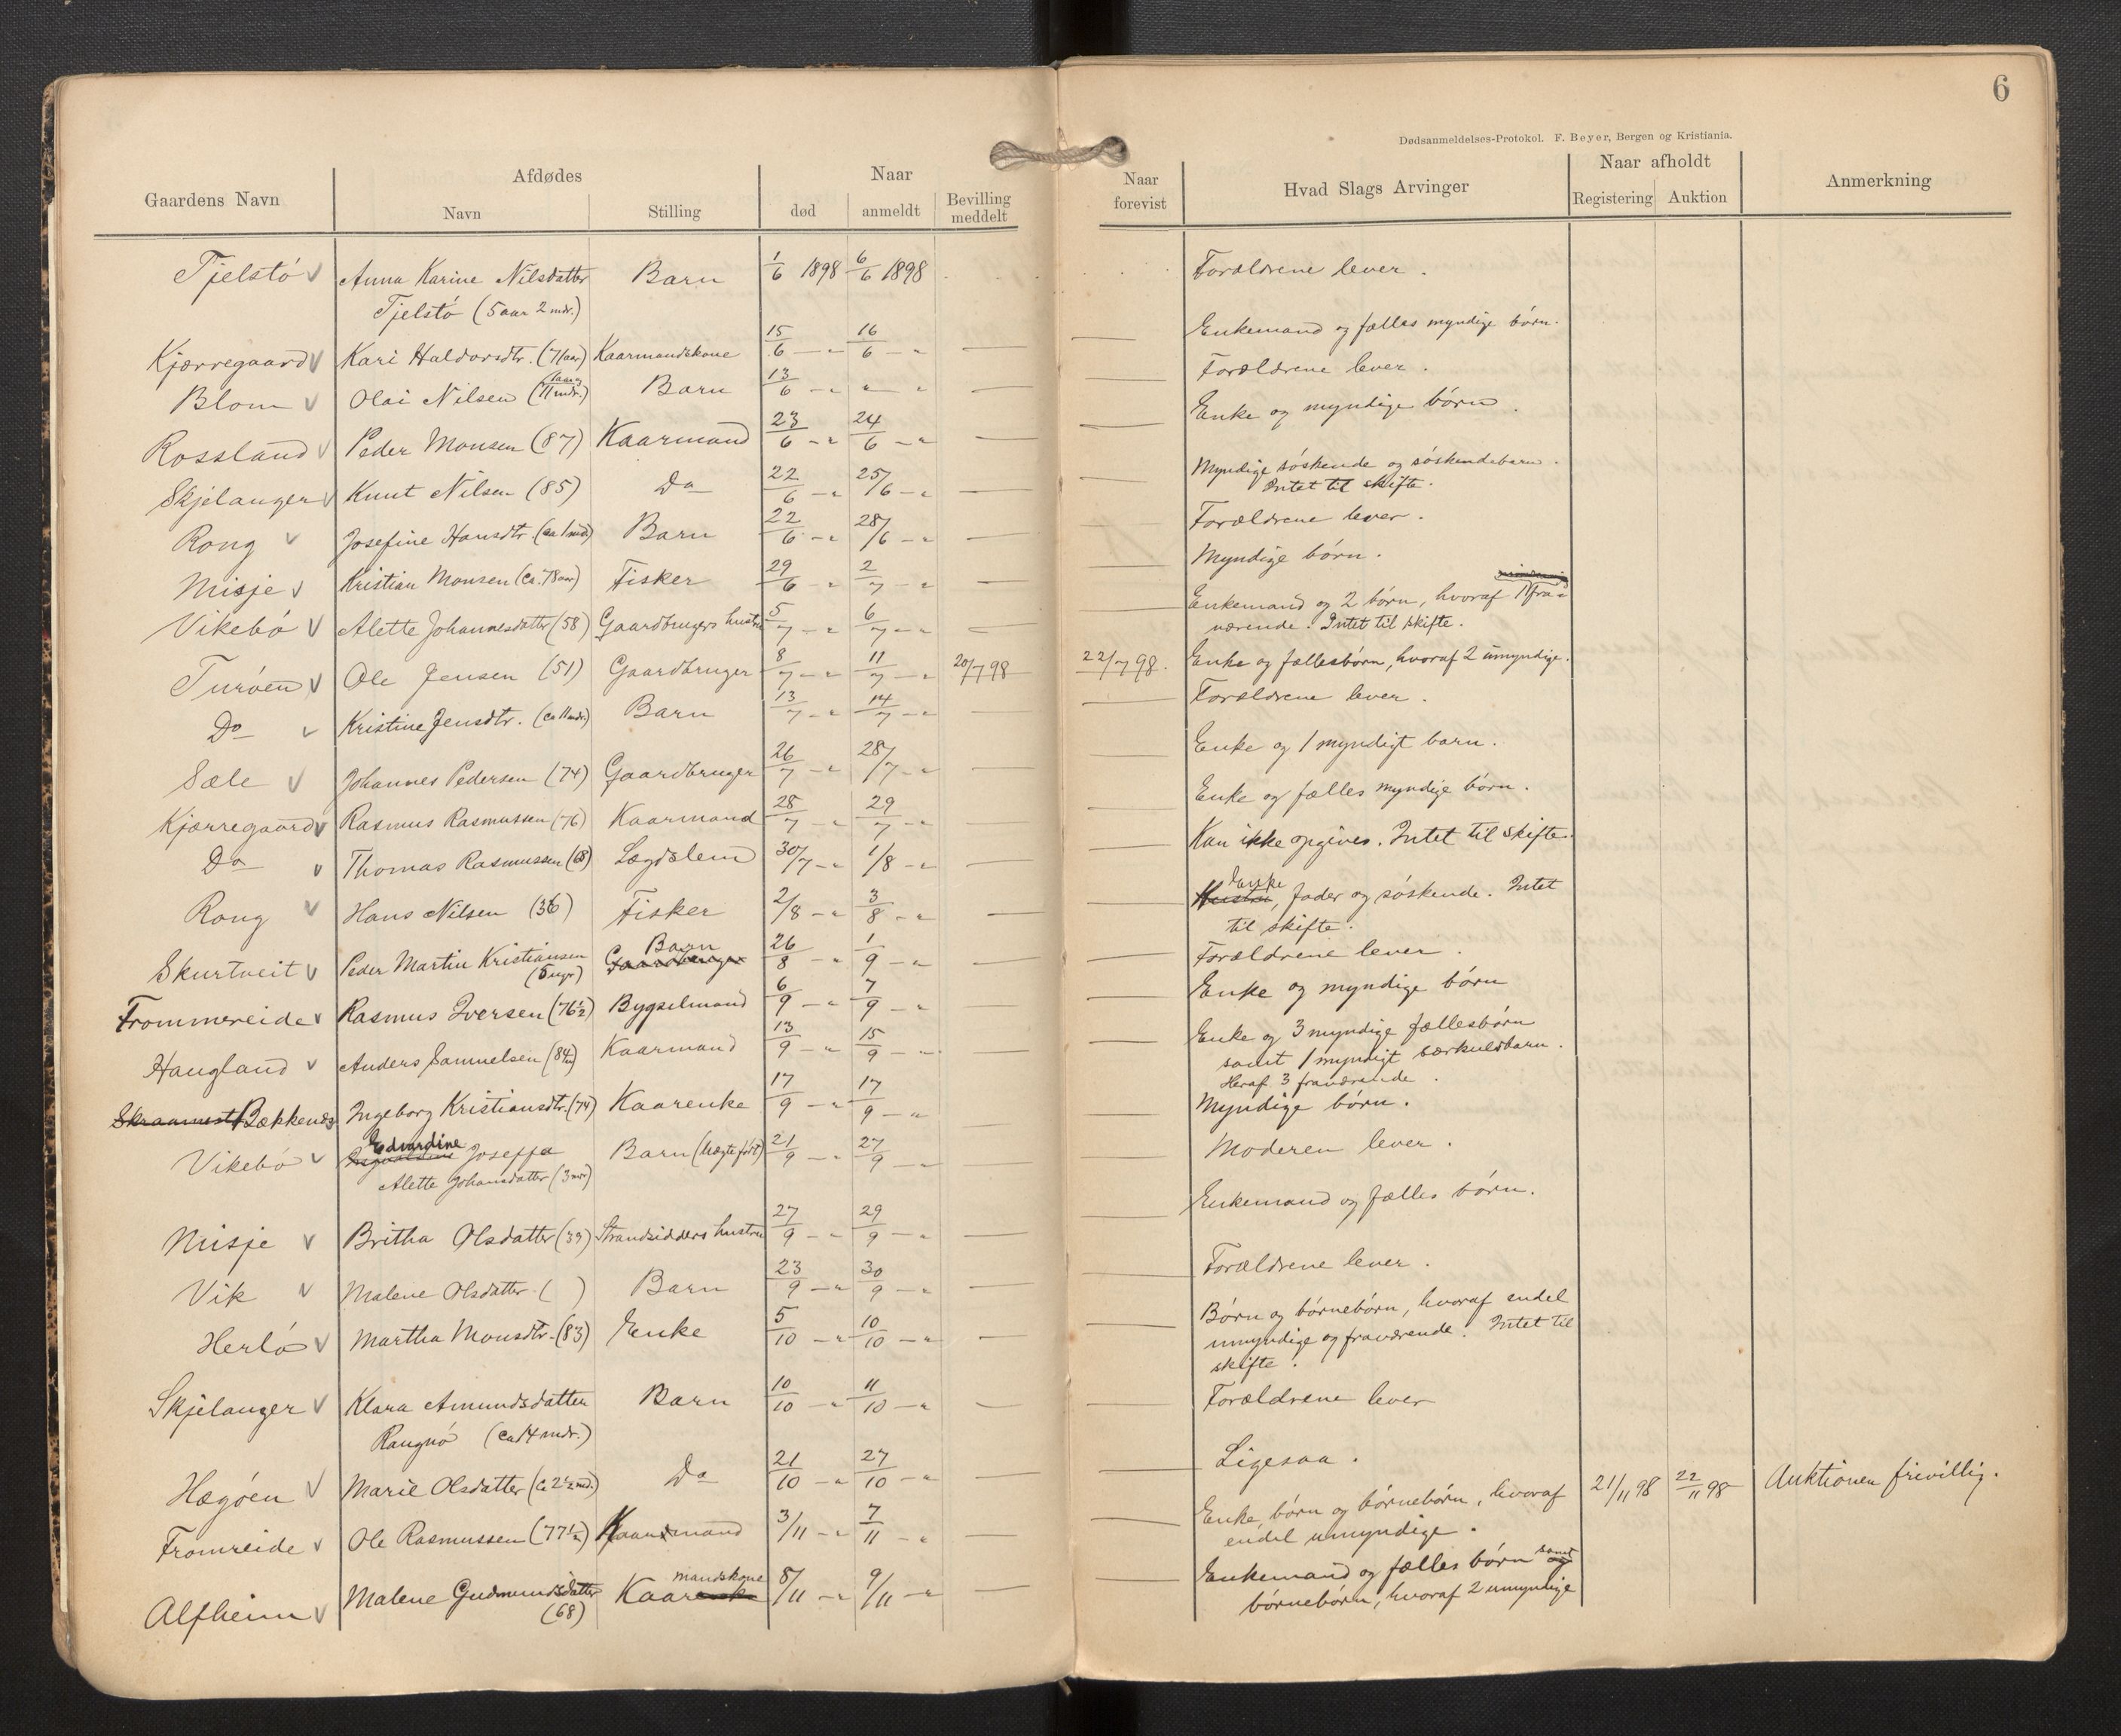 6
Dødsanmeldelses-Protokol. F. Beyer, Bergen og Kristiania.
Gaardens Navn | Afdødes | Naar | Naar forevist | Hvad Slags Arvinger | Naar afholdt | Anmerkning
Navn | Stilling | død | anmeldt | Bevilling meddelt | Registering | Auktion
Tjelstø v | Anna Karine Nilsdatter | Barn | 1/6 1898 | 6/6 1898 | Forældrene lever.
Tjelstø (5 aar 2 mdr.)
Kjærregaard v | Kari Haldorsdtr. (71 aar) | Kaarmandskone | 15/6 — " | 16/6 — " | — | — | Enkemand og fælles myndige børn.
Blom v | Olai Nilsen (1 aar og 11 mdr.) | Barn | 13/6 — " | " " | — | — | Forældrene lever.
Rossland v | Peder Monsen (87) | Kaarmand | 23/6 — " | 24/6 — " | — | — | Enke og myndige børn.
Skjelanger v | Knut Nilsen (85) | Do | 22/6 — " | 25/6 — " | — | — | Myndige søskende og søskendebarn.
Intet til skifte.
Rong v | Josefine Hansdtr. (ca 1 md) | Barn | 22/6 — " | 28/6 — " | — | — | Forældrene lever.
Misje v | Kristian Monsen (ca. 78 aar) | Fisker | 29/6 — " | 2/7 — " | — | — | Myndige børn.
Vikebø v | Alette Johannesdatter (58) | Gaardbrugers hustru | 5/7 — " | 6/7 — " | — | — | Enkemand og 2 børn, hvoraf 1 fra-
værende. Intet til skifte.
Turøen v | Ole Jensen (51) | Gaardbruger | 8/7 — " | 11/7 — " | 20/7 98 | 22/7 98. | Enke og fællesbørn, hvoraf 2 umyndige.
Do v | Kristine Jensdtr. (ca 11 mdr.) | Barn | 13/7 — " | 14/7 — " | — | — | Forældrene lever.
Sæle v | Johannes Pedersen (74) | Gaardbruger | 26/7 — " | 28/7 — " | — | — | Enke og 1 myndigt barn.
Kjærregaard v | Rasmus Rasmussen (76) | Kaarmand | 28/7 — " | 29/7 — " | — | — | Enke og fælles myndige børn.
Do v | Thomas Rasmussen (68) | Lægdslem | 30/7 — " | 1/8 — " | — | — | Kan ikke opgives. Intet til skifte.
Rong v | Hans Nilsen (36) | Fisker | 2/8 — " | 3/8 — " | — | — | Enke, fader og søskende. Intet
til skifte.
Skurtveit v | Peder Martin Kristiansen (5 uger) | Barn Gaardbruger | 26/8 — " | 1/9 — " | — | — | Forældrene lever.
Frommereide v | Rasmus Iversen (76½) | Bygselmand | 6/9 — " | 7/9 — " | — | — | Enke og myndige børn
Haugland v | Anders Samuelsen (84) | Kaarmand | 13/9 — " | 15/9 — " | — | — | Enke og 3 myndige fællesbørn
samt 1 myndigt særkuldbarn.
Heraf 3 fraværende.
Skraamestø Bækkenes | Ingeborg Kristiansdtr. (74) | Kaarenke | 17/9 — " | 17/9 — " | — | — | Myndige børn.
Vikebø v | Edvardine Joseffa | Barn (uægte født) | 21/9 — " | 27/9 — " | — | — | Moderen lever.
Alette Johansdatter (3 mdr)
Misje v | Britha Olsdatter (39) | Strandsidders hustru | 27/9 — " | 29/9 — " | — | — | Enkemand og fælles børn.
Vik v | Malene Olsdatter ( ) | Barn | 23/9 — " | 30/9 — " | — | — | Forældrene lever.
Herlø v | Martha Monsdtr. (83) | Enke | 5/10 — " | 10/10 — " | — | — | Børn og børnebørn, hvoraf endel
umyndige og fraværende. Intet til
skifte.
Skjelanger v | Klara Amundsdatter | Barn | 10/10 — " | 11/10 — " | — | — | Forældrene lever
Rangnø (ca 14 mdr.)
Hægøen v | Marie Olsdatter (ca 2½ md.) | Do | 21/10 — " | 27/10 — " | — | — | Ligesaa.
Fromreide v | Ole Rasmussen (77½) | Kaarmand | 3/11 — " | 7/11 — " | — | — | Enke, børn og børnebørn, hvoraf | 21/11 98 | 22/11 98 | Auktionen frivillig.
endel umyndige.
Alfheim v | Malene Gudmundsdatter (68) | Kaarmandskone | 8/11 — " | 9/11 — " | — | — | Enkemand og fælles børn samt og
børnebørn, hvoraf 2 umyndige